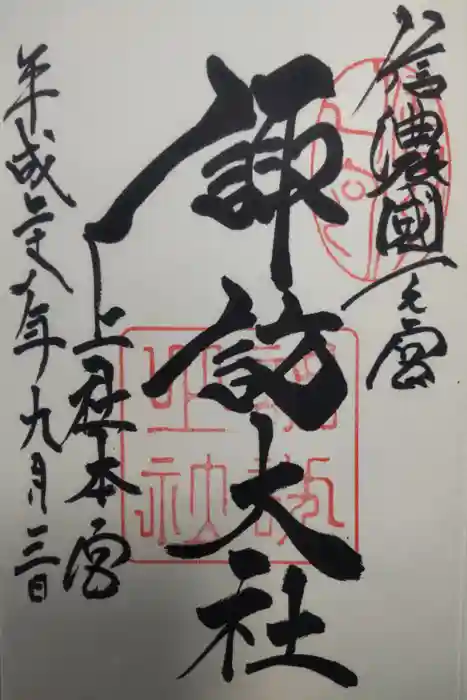 信濃國一之宮
諏訪大社
上社本宮
平成年九月三日